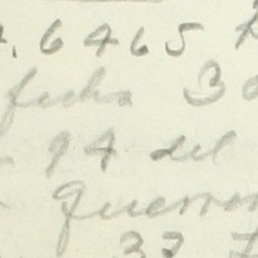 6465
fecha 3
94 del
Guerrer
33